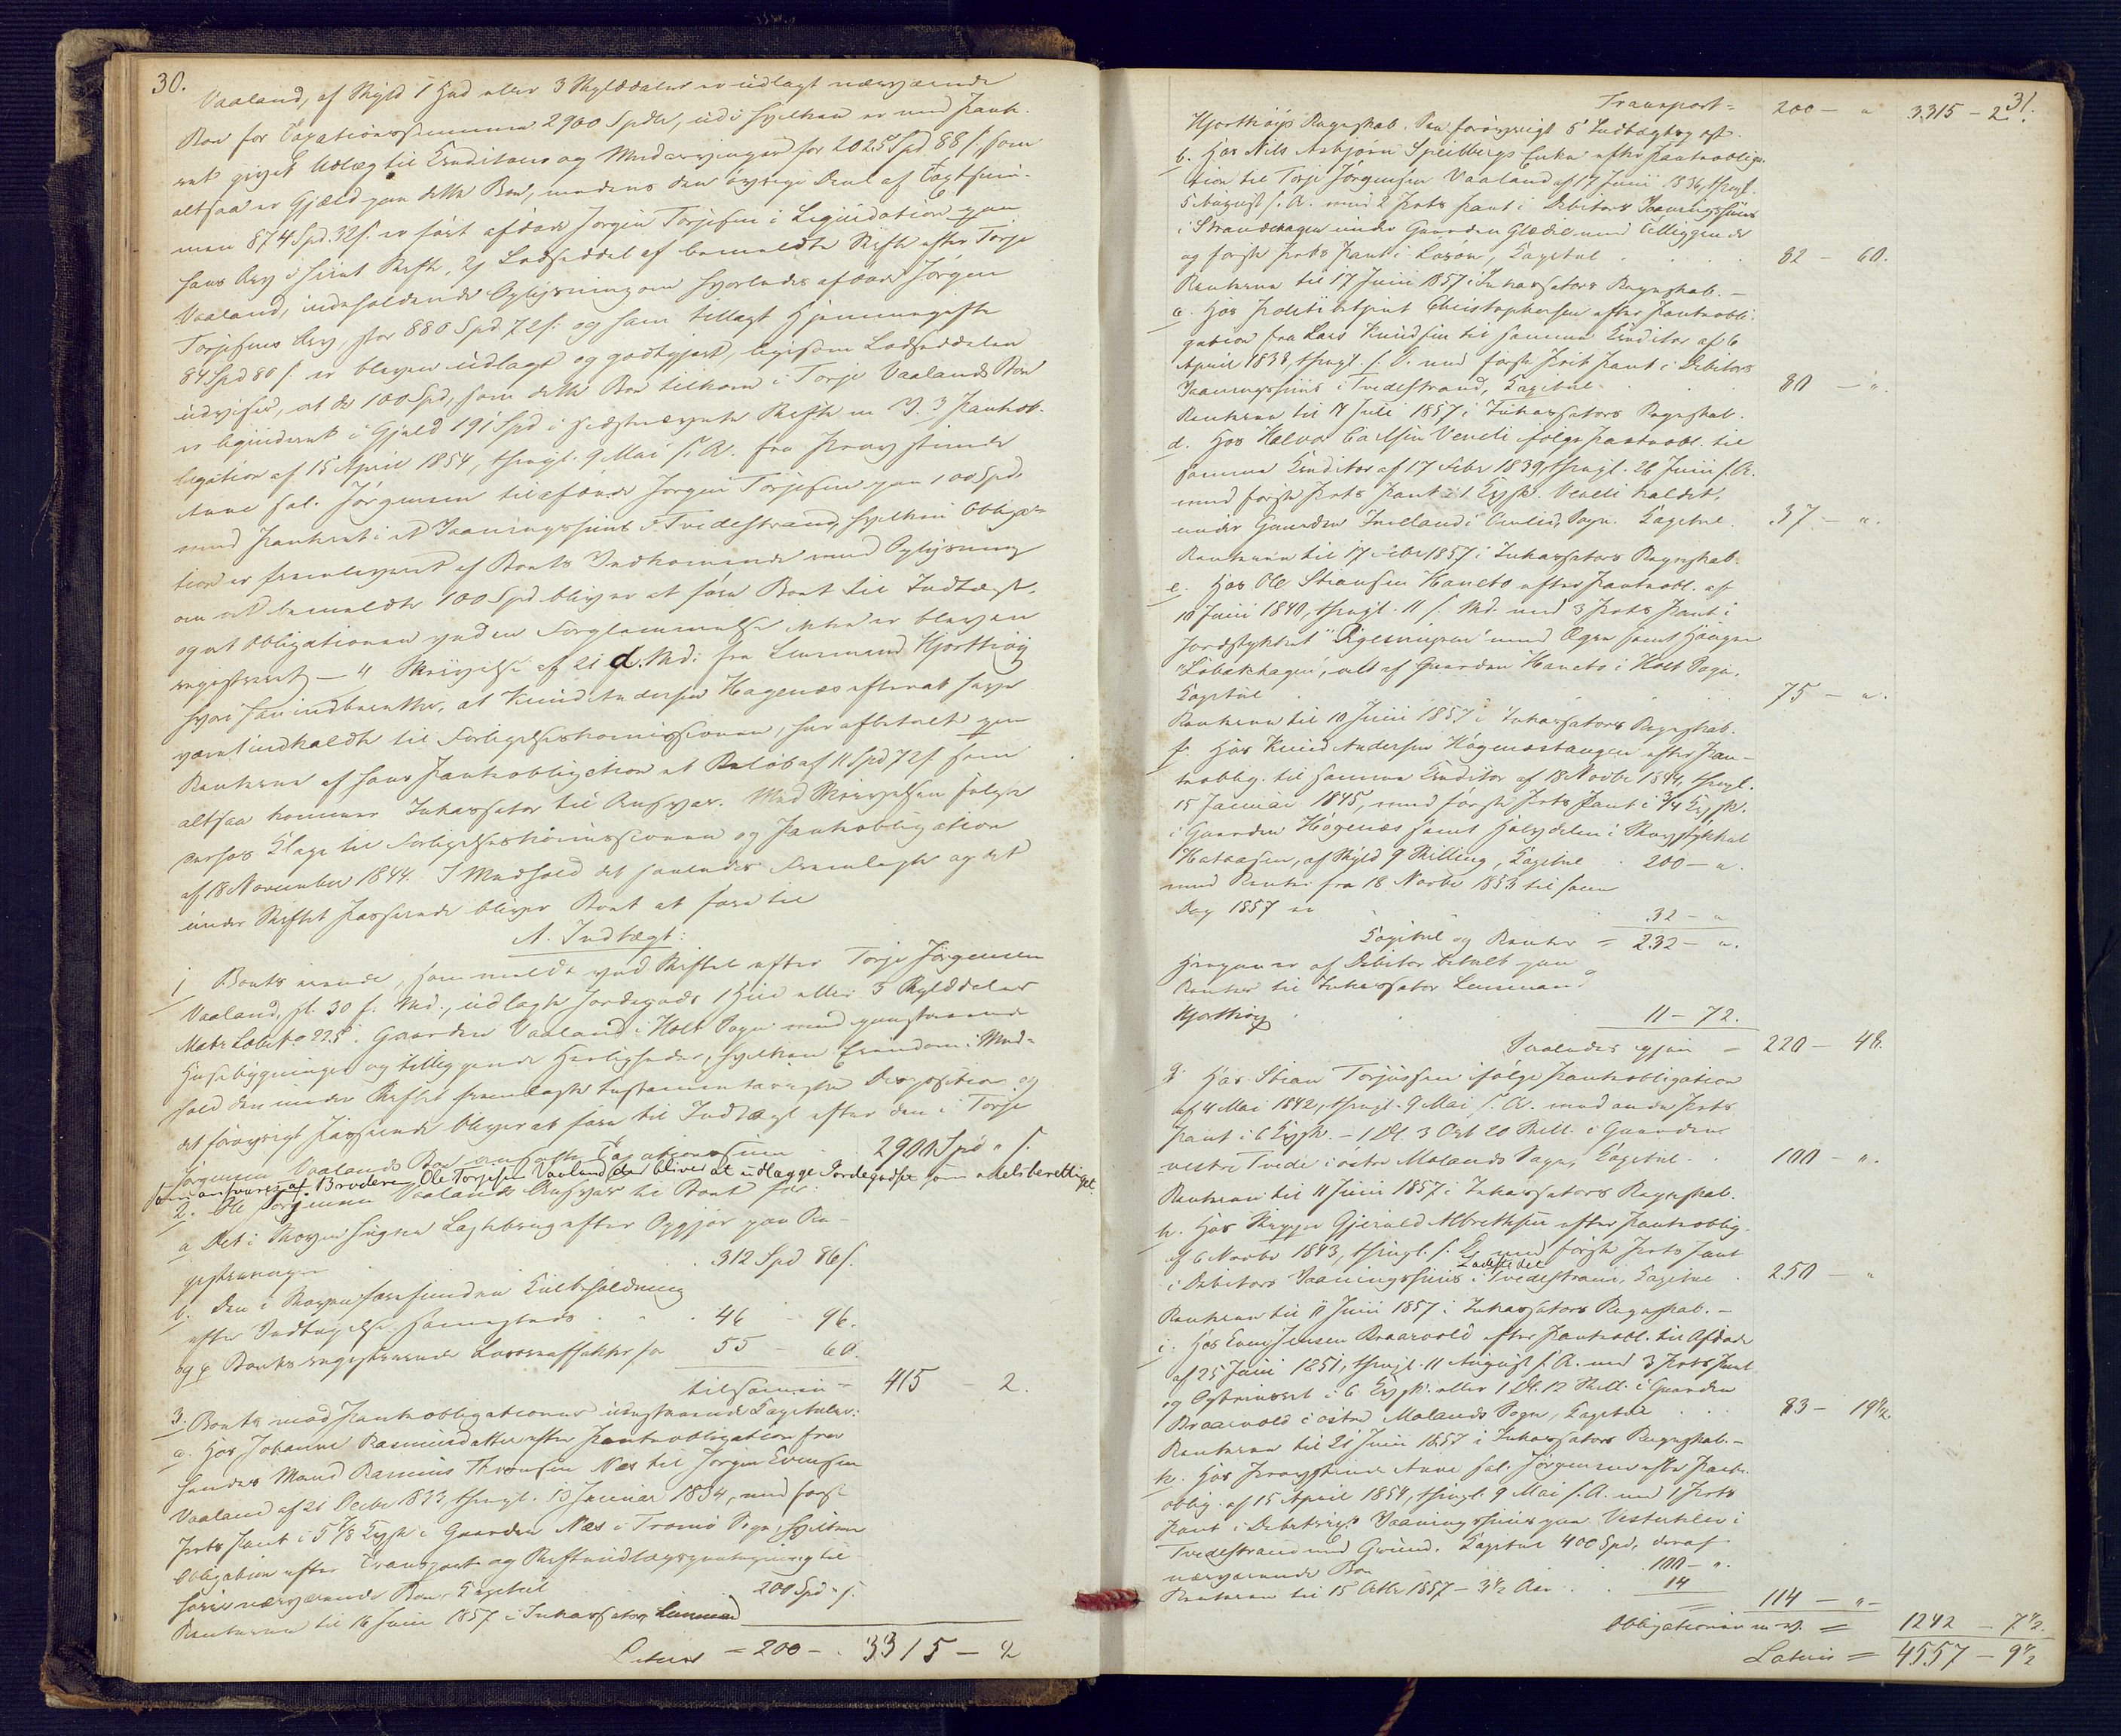 30.
Vaaland, af Skyld 1 Hud eller 3 Skylddaler er udlagt nærværende
Bo for Taxationssummen 2900 Spdlr, udi hvilken er med Pant-
ret givet Udlæg til Creditorer og Medarvinger for 2025 Spd 88 s, som
altsaa er Gjæld paa dette Bo, medens den øvrige Deel af Taxtsum-
men 874 Spd. 32 s. er ført afdøde Jørgen Torjesen i Liqvidation paa
hans Arv i hint Skifte, 2) Lodseddel af bemeldte Skifte efter Torje
Vaaland, indeholdende Oplysning om hvorledes afdøde Jørgen
Torjesens Arv, stor 880 Spd 72 s. og ham tillagt Hjemmegifte
84 Spd 80 s. er bleven udlagt og godtgjort, ligesom Lodseddelen
udviser, at de 100 Spd, som dette Bo tilkom i Torje Vaalands Bo
er liqvideret i Gjæld 191 Spd i sidstnævnte Skifte m. V. 3 Pantob-
ligation af 15 April 1854, thingl. 9 Mai s. A. fra Provstinde
Anne sal. Jørgensen til afdøde Jørgen Torjesen paa 100 Spd,
med Panteret i et Vaaningshuus i Tvedestrand, hvilken Obliga-
tion er fremleveret af Boets Vedkommende med Oplysning
om at bemeldte 100 Spd bliver at føre Boet til Indtægt,
og at Obligationen ved en Forglemmelse ikke er bleven
registreret – 4 Skrivelse af 21 d. Md. fra Lensmand Hjorthøy
hvori han indberetter, at Knud Andersen Hagenæs efter at have
været indkaldt til Forligelseskommissionen, har afbetalt paa
Renterne af hans Pantobligation et Beløb af 11 Spd 72 s. som
altsaa kommer Inkassator til Ansvar. Med Skrivelsen fulgte
Klage til Forligelseskommissionen og Pantobligation
af 18 November 1844. I Medhold det saaledes Fremlagte og det
under Skiftet Passerede bliver Boet at føre til
A. Indtægt:
1 Boets eiende, som meldt ved Skiftet efter Torje Jørgensen
Vaaland, sl. 30 f. Md., udlagte Jordegods 1 Hud eller 3 Skylddaler
Matr Løbe No 225 i Gaarden Vaaland i Holt Sogn med paastaaende
Huusebygninger og tilliggende Herligheder, hvilken Eiendom i Med-
hold den under Skiftet fremlagte testamentariske Disposition og
det forøvrigt Passerede bliver at føre til Indtægt efter den i Torje
Jørgensen Vaalands Bo ansatte Taxationssum . 2900 Spd " s.
som ansvares af Broderen Ole Torjesen Vaaland der bliver at udlægge Jordegodset som odelsberettiget.
2. Ole Torjesen Vaaland Ansvar til Boet for:
a Det i Skoven hugne Lastebrug efter Opgjør paa Re-
gistreringen . 312 Spd 86 s.
b. Den i Skoven forefundne Kulbeholdning
efter Vedtagelse sammesteds . . . 46 - 96.
og c Boets registrerede Løsøreeffekter for 55 - 60.
tilsammen = 415 - 2.
3. Boets mod Pantobligationer udestaaende Capitaler:
a. Hos Johanne Rasmusdatter efter Pantobligation fra
hendes Mand Rasmus Thronsen Næs til Jørgen Evensen
Vaaland af 21 Decbr 1833, thingl. 13 Januar 1834, med første
Prts Pant i 5 7/8 Eng i Gaarden Næs i Tromø Sogn, hvilken
Obligation efter Transport og Skifteudlægspaategning til
hører nærværende Bo, Capital . 200 Spd " s.
Renterne til 16 Juni 1857 i Inkassator Lensmand
Lateris = 200 - . 3315 - 2
31.
Transport = 200 - " 3315 - 2.
Hjorthøys Regnskab. Den forøvrigt § Indtægtsp. af.
b. Hos Nils Asbjørn Speilbergs Enke efter Pantobliga-
tion til Torje Jørgensen Vaaland af 17 Juni 1836, thingl.
5 August s. A. med 2 Prts Pant i Debitors Vaaningshuus
i Strandehagen under Gaarden Glødie med Tilliggende
og første Prts Pant i Løsøre, Capital . . . 82 - 60.
Renterne til 17 Juni 1857 i Inkassators Regnskab. –
c. Hos Politibetjent Christophersen efter Pantobli-
gation fra Lars Knudsen til samme Creditor af 6
April 1838, thingl. s. D. med første Prts Pant i Debitors
Vaaningshuus i Tvedestrand, Capital . . 80 - ".
Renterne til 17 Juli 1857 i Inkassators Regnskab.
d. Hos Halvor Carlsen Veneli ifølge Pantobl. til
samme Creditor af 17 Febr 1839, thingl. 26 Juni s. A.
med første Prts Pant i 1 Engsk. Veneli kaldet,
under Gaarden Inneland i Omlid Sogn. Capital . 37 - ".
Renterne til 17 Febr 1857 i Inkassators Regnskab.
e. Hos Ole Stiansen Hanebo efter Pantobl. af
10 Juni 1840, thingl. 11 s. Md. med 3 Prts Pant i
Jordstykket "Rigesmyren" med Ager samt Haugen
"Løbækhagen", alt af Gaarden Hanebo i Holt Sogn,
Capital . . . . 75 - ".
Renterne til 10 Juni 1857 i Inkassators Regnskab.
f. Hos Knud Andersen Hagenæstangen efter Pan-
toblig. til samme Creditor af 18 Novbr 1844, thingl.
15 Januar 1845, med første Prts Pant i 3/4 Engsk.
i Gaarden Hagenæs samt Halvdelen i Skovstykket
Hataasen, af Skyld 9 Skilling, Capital . 200 - ".
med Renter fra 18 Novbr 1853 til samme
Dag 1857 er . 32 - "
Capital og Renter = 232 - ".
Herpaa er af Debitor betalt paa
Renter til Inkassator Lensmand
Hjorthøy . . . 11 - 72.
Saaledes igjen = 220 - 48.
g. Hos Stian Torjussen ifølge Pantobligation
af 4 Mai 1842, thingl. 9 Mai s. A. med anden Prts
Pant i 6 Engsk. – 1 Dl. 3 Ort 20 Skill. i Gaarden
vestre Tvede i østre Molands Sogn, Capital . . 100 - ".
Renterne til 11 Juni 1857 i Inkassators Regnskab.
h. Hos Skipper Gjeruld Albrethsen efter Pantoblig.
af 6 Novbr 1843, thingl. s. D. med første Prts Pant
i Debitors Vaaningshuus i Tvedestrand, Capital . 250 - "
Renterne til 11 Juni 1857 i Inkassators Regnskab. –
i. Hos Even Jensen Braarvold efter Pantobl. til Afdøde
af 25 Juni 1851, thingl. 11 August s. A. med 3 Prts Pant
og Opbudsret i 6 Engsk. eller 1 Dl. 12 Skill. i Gaarden
Braarvold i østre Molands Sogn, Capital . . 83 - 19 1/2
Renterne til 21 Juni 1857 i Inkassators Regnskab. –
k. Hos Provstinde Anne sal. Jørgensen efter Pant-
oblig. af 15 April 1854, thingl. 9 Mai s. A. med 1 Prts
Pant i Debitricens Vaaningshuus paa Vesterkleiv i
Tvedestrand med Grund. Capital 400 Spd, deraf
nærværende Bo . 100 - ".
Renterne til 15 Octbr 1857 – 3 1/2 Aar . . 14
= 114 - " -
Obligationer m. v. = 1242 - 7 1/2
Lateris = 4557 - 9 1/2